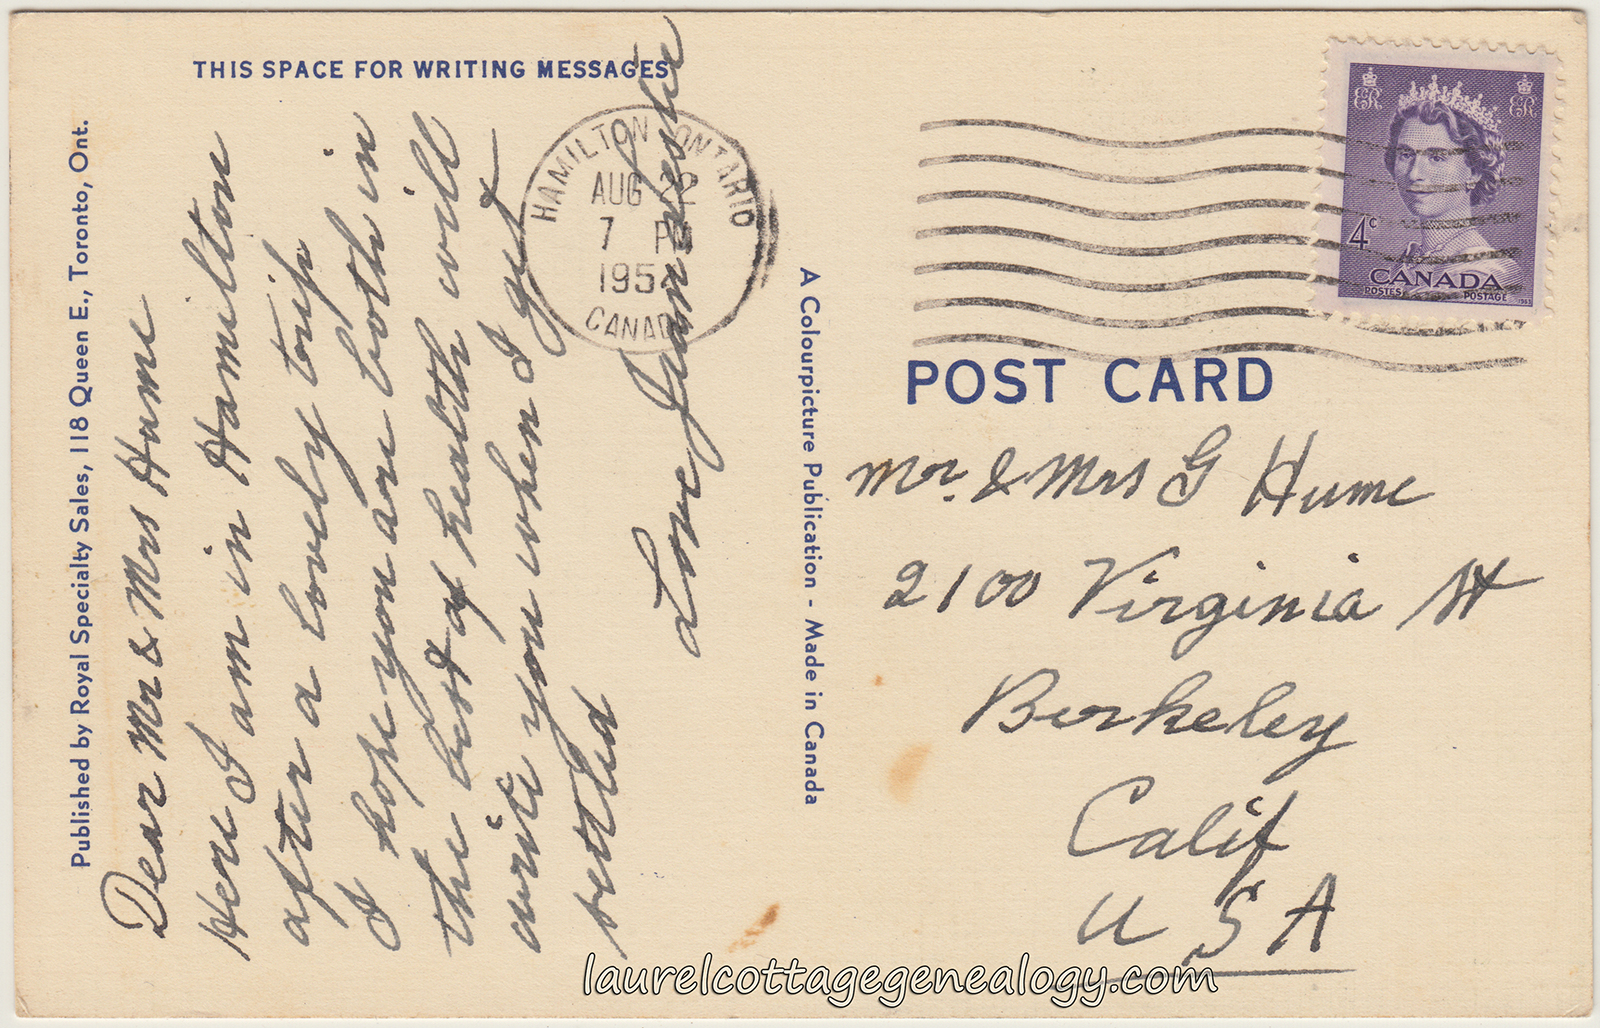 THIS SPACE FOR WRITING MESSAGES
Published by Royal Specialty Sales, 118 Queen E., Toronto, Ont.
Dear Mr & Mrs Hume
Here I am in Hamilton
after a lovely trip
I hope you are both in
the best of health will
write you when I get
settled
Love Jean
HAMILTON ONTARIO
AUG 22
7 PM
195
CANADA
A Colourpicture Publication - Made in Canada
4c
CANADA
POSTES POSTAGE
POST CARD
Mr. & Mrs G Hume
2100 Virginia St
Berkeley
Calif
U S A
laurelcottagegenealogy.com